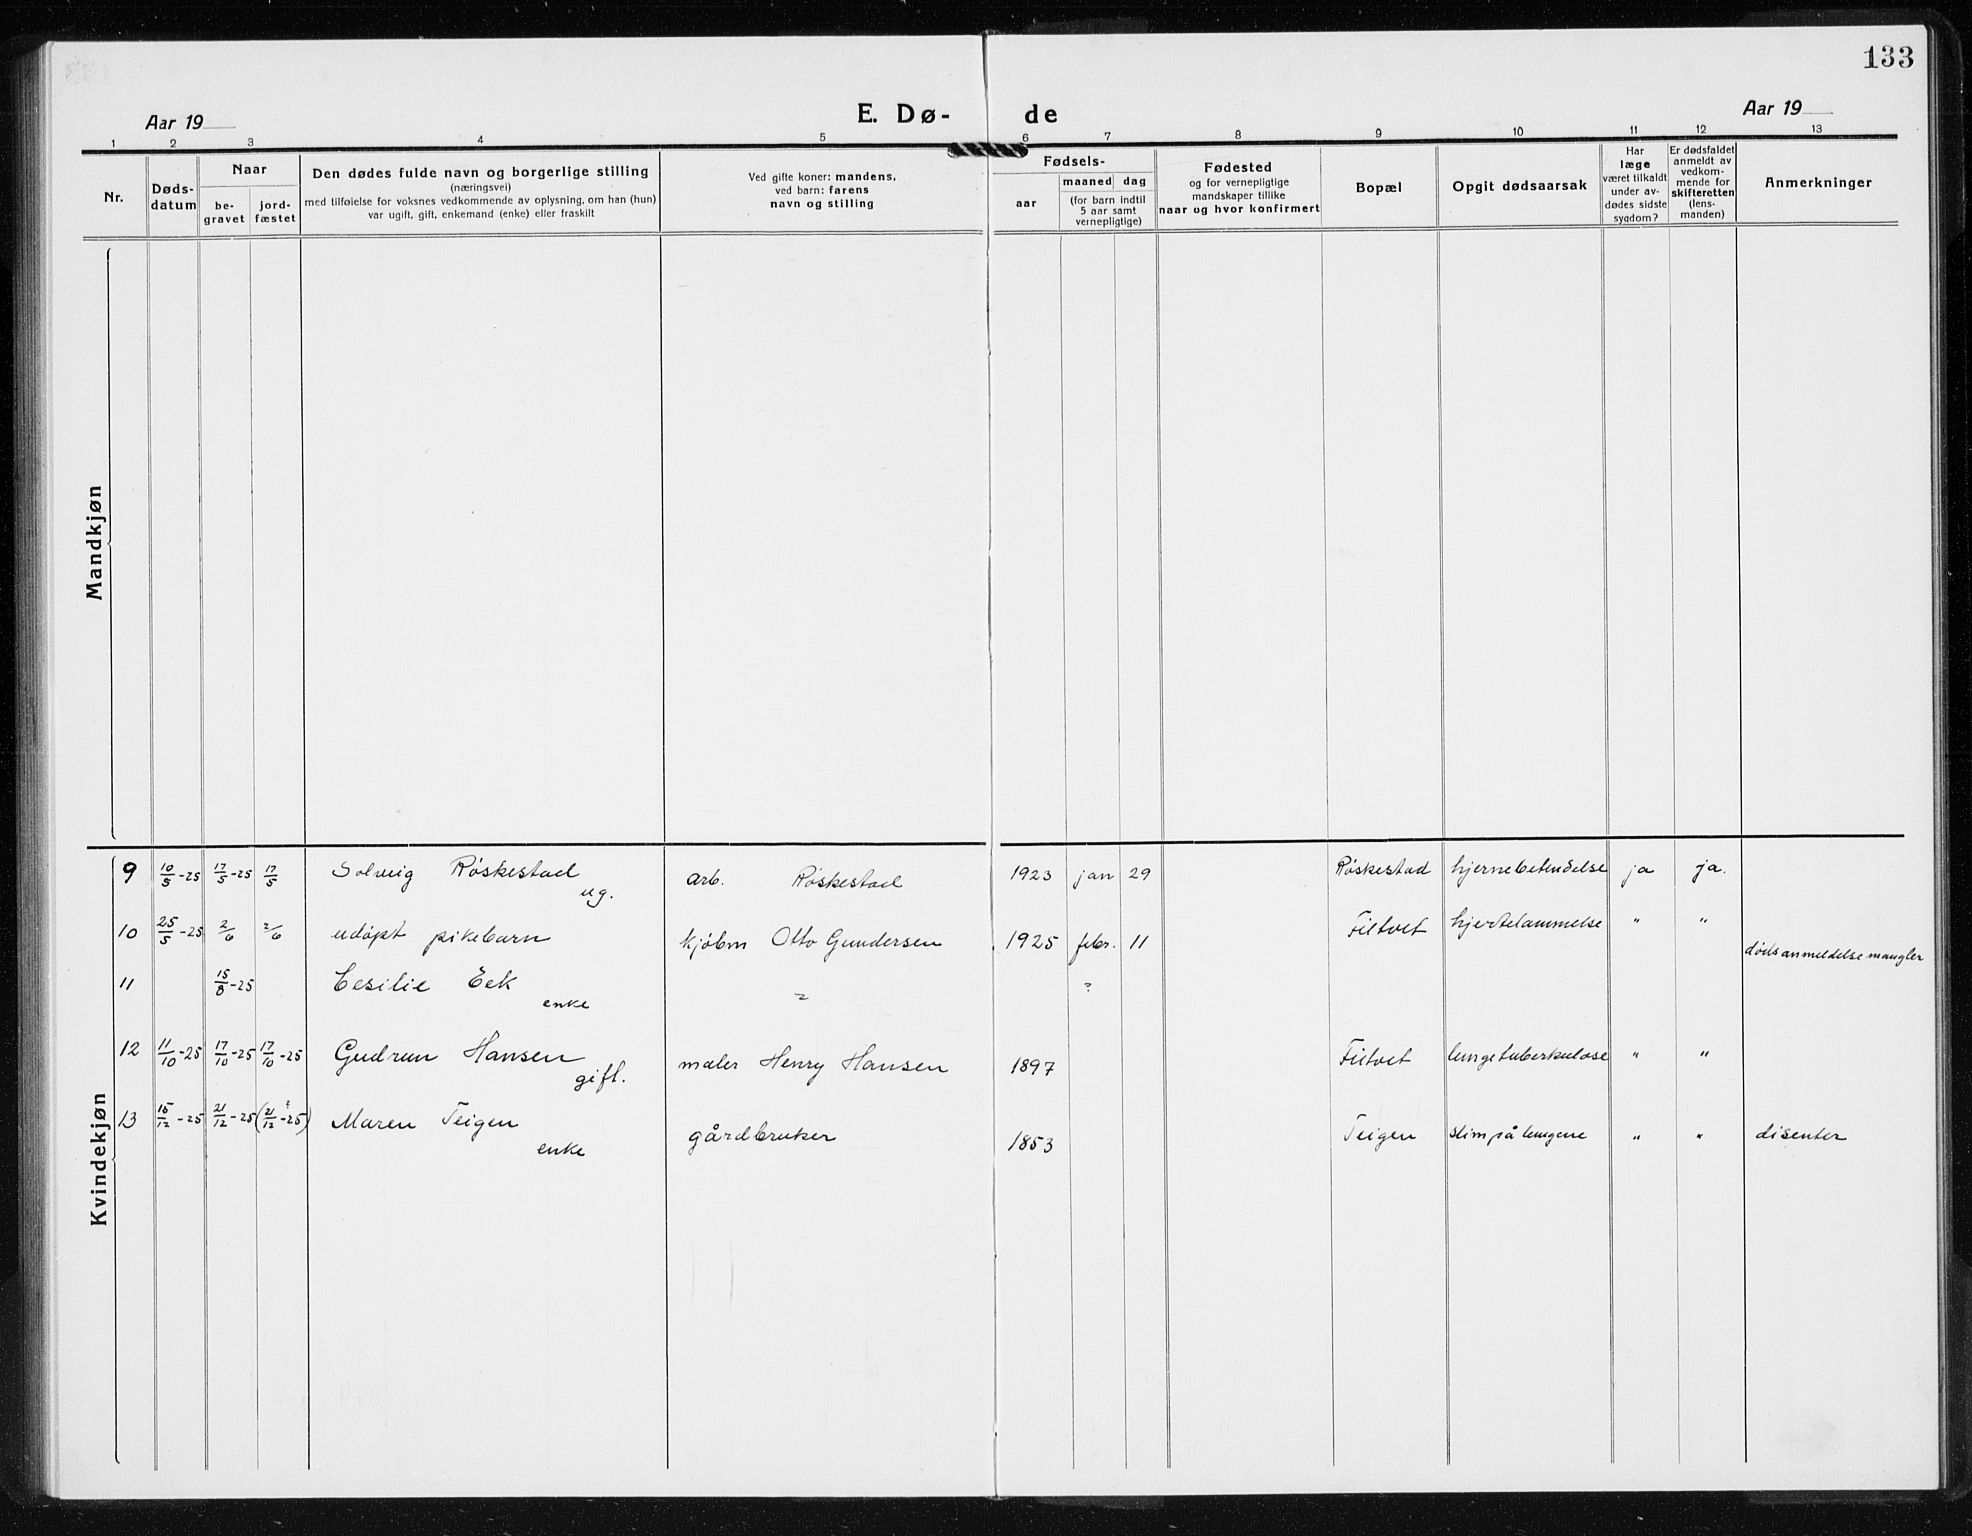 133
Aar 19
E. Dø-
de
Aar 19
1 2 3 4 5 6 7 8 9 10 11 12 13
Nr.
Døds-
datum
Naar
be-
gravet
jord-
fæstet
Den dødes fulde navn og borgerlige stilling
(næringsvei)
med tilføielse for voksnes vedkommende av oplysning, om han (hun)
var ugift, gift, enkemand (enke) eller fraskilt
Ved gifte koner: mandens,
ved barn: farens
navn og stilling
Fødsels-
aar
maaned dag
(for barn indtil
5 aar samt
vernepligtige)
Fødested
og for vernepligtige
mandskaper tillike
naar og hvor konfirmert
Bopæl
Opgit dødsaarsak
Har
læge
været tilkaldt
under av-
dødes sidste
sygdom?
Er dødsfaldet
anmeldt av
vedkom-
mende for
skifteretten
(lens-
manden)
Anmerkninger
Mandkjøn
Kvindekjøn
9 10/5-25 17/5-25 17/5 Solveig Röskestad arb. Röskestad 1923 jan 29 Röskestad hjernebetendelse ja ja.
ug.
10 25/5-25 2/6 2/6 udöpt pikebarn kjöbm Otto Gundersen 1925 febr. 11 Filtvet hjertelammelse " "
dødsanmeldelse mangler
11 15/8-25 Cesilie Eek ?
enke
12 11/10-25 17/10-25 17/10-25 Gudrun Hansen maler Henry Hansen 1897 Filtvet lungetuberkulose " "
gift.
13 15/12-25 21/12-25 (21/12-25)? Maren Teigen gårdbruker 1853 Teigen slim på lungene " " disenter
enke